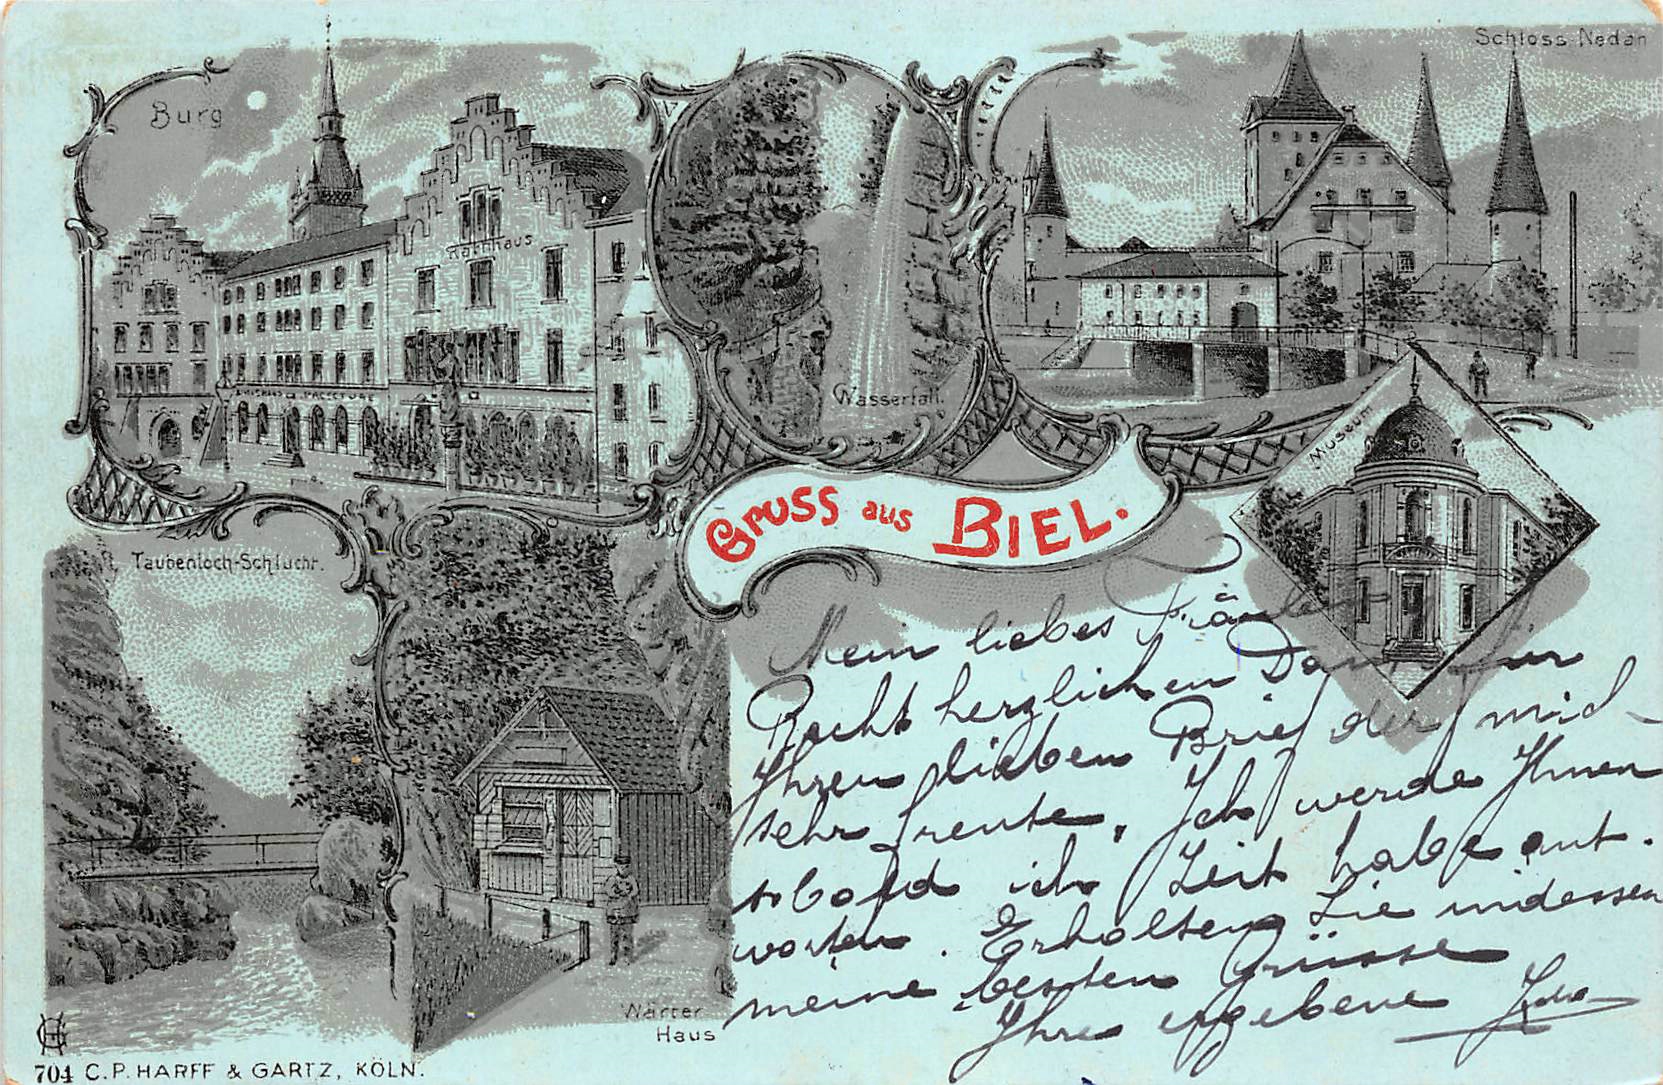 Burg
Rathhaus
Wasserfall.
Schloss Nedan
Museum
Gruss aus BIEL.
Taubenloch-Schlucht.
Wärter
Haus
Mein liebes Fräulein
Recht herzlichen Dank für
Ihren lieben Brief der mich
sehr freute. Ich werde Ihnen
sobald ich Zeit habe ant.
worten. Erholten Sie indessen
meine besten Grüsse
Ihre ergebene
704 C.P. HARFF & GARTZ, KÖLN.